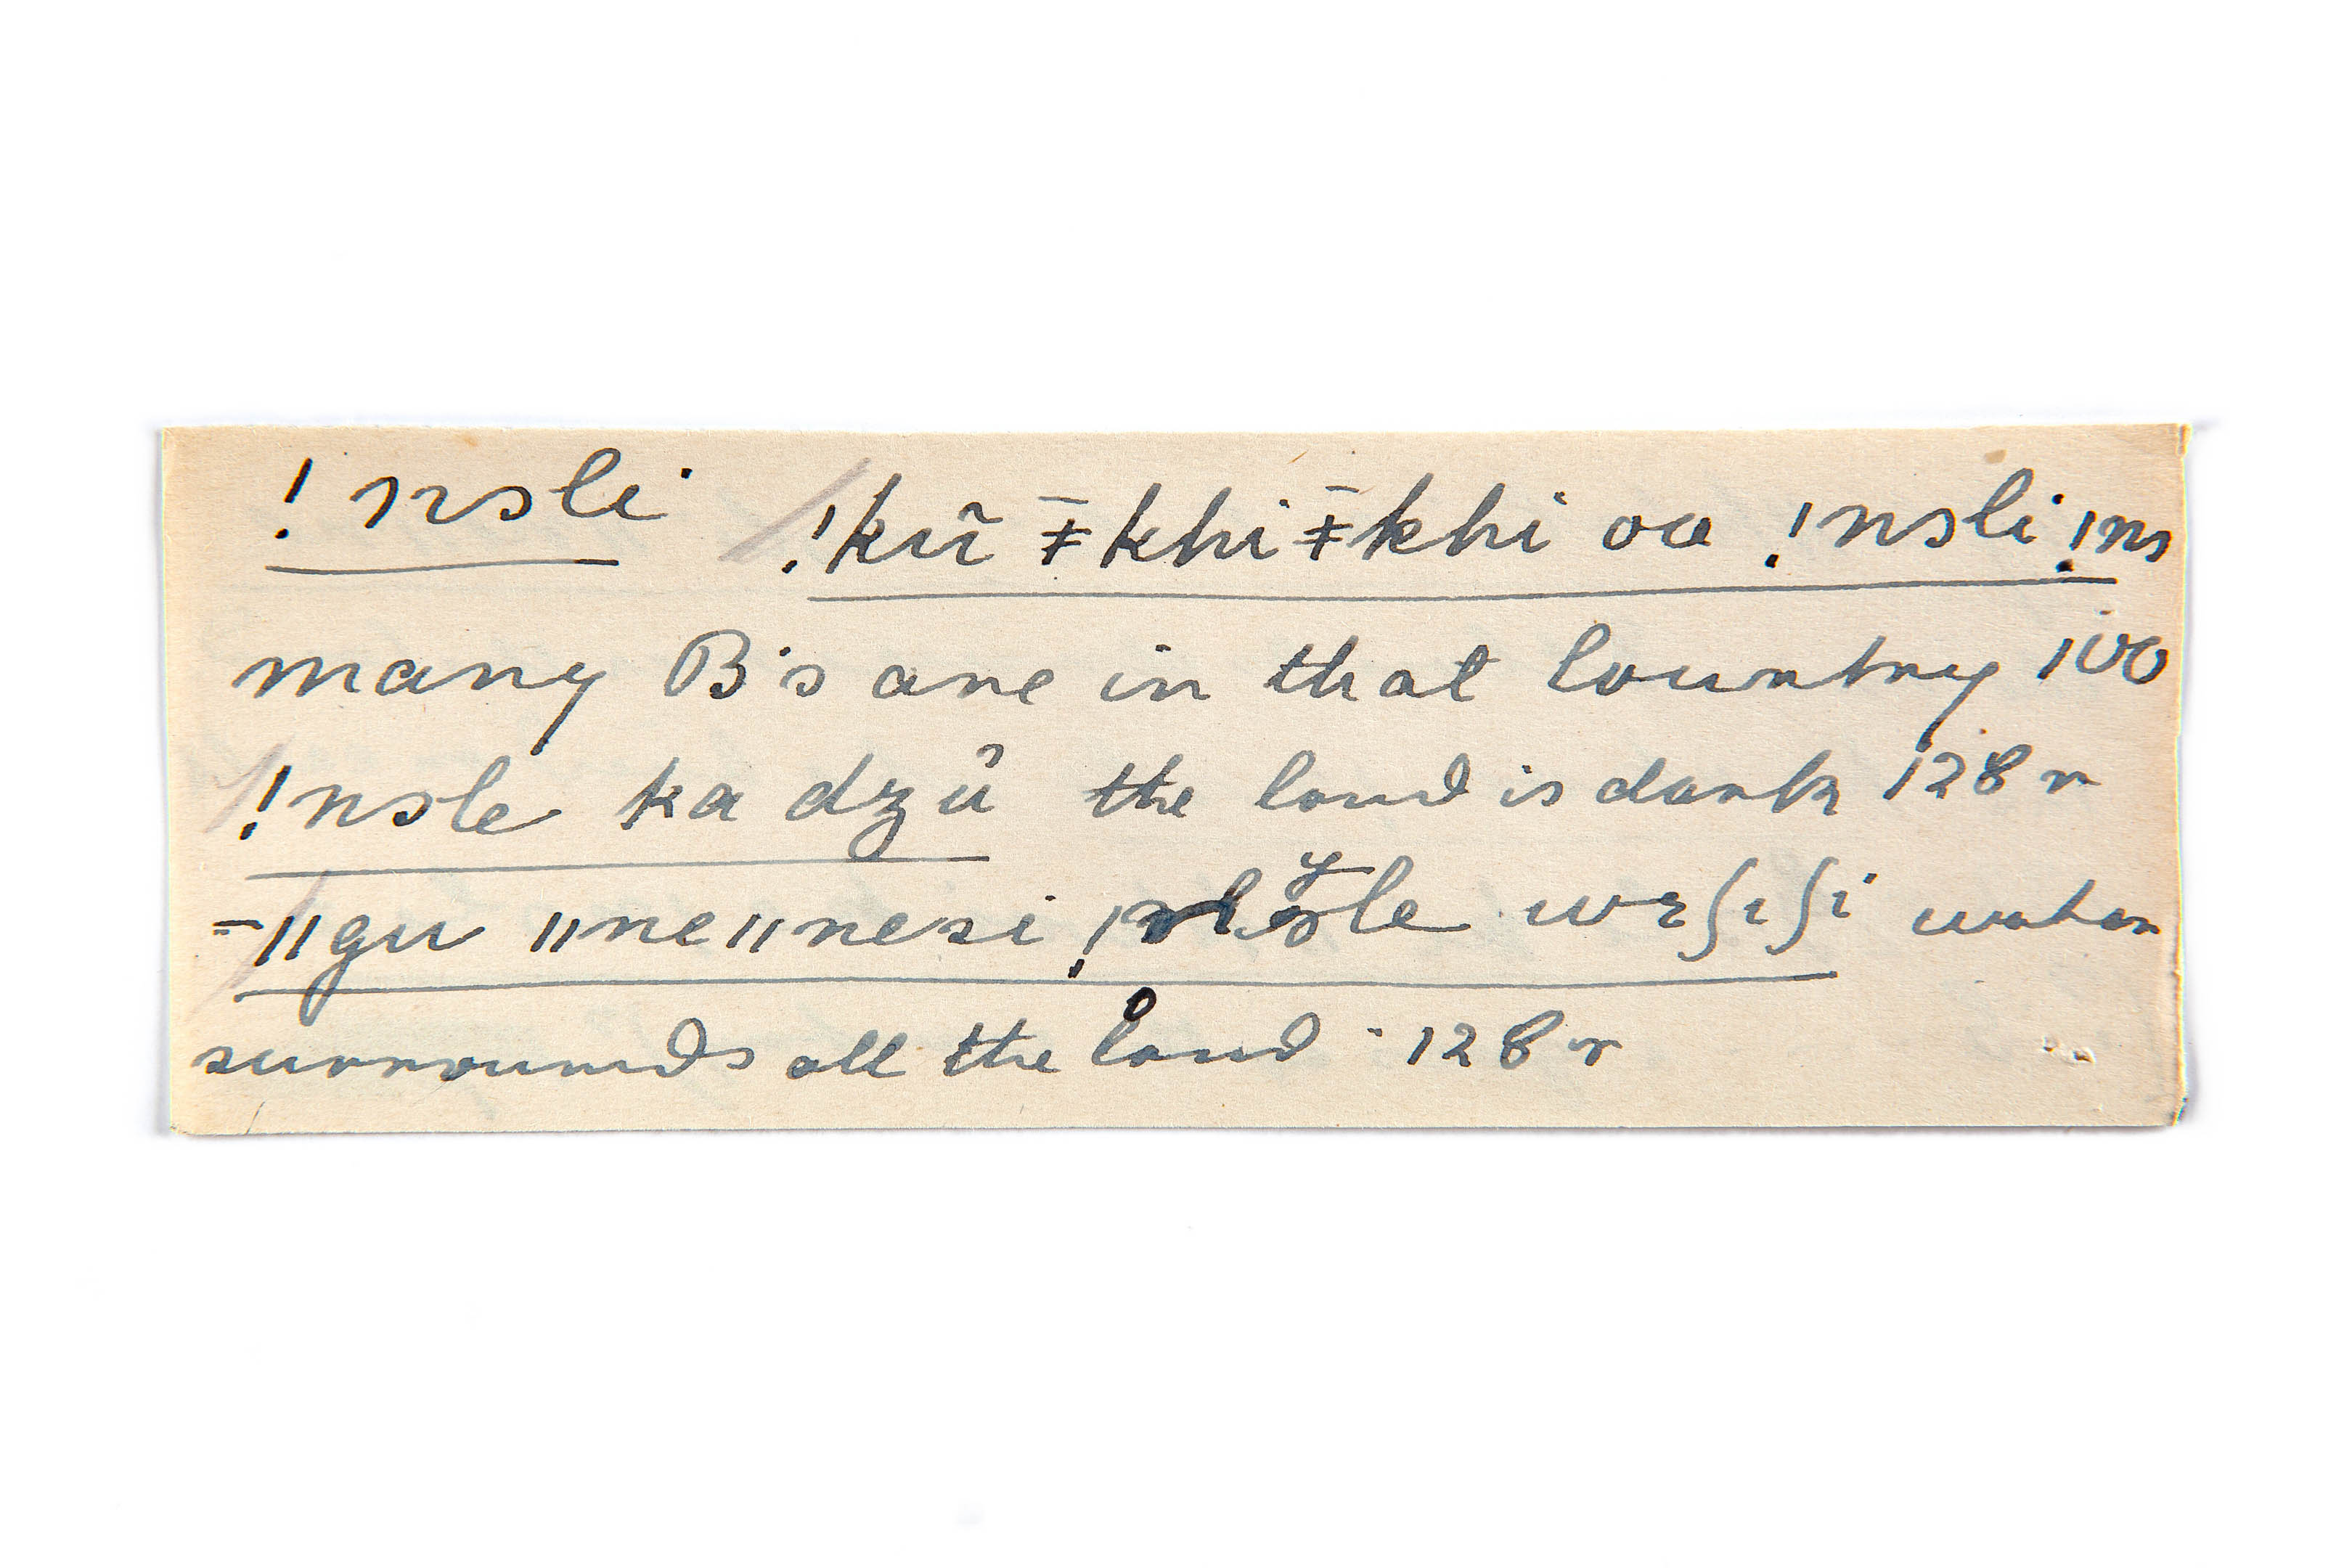 !nsli !kũ ǂ̄khiǂ̄khi oa !nsli !ns
many B's are in that country 100
!nsle ka dzũ the land is dark 128 r
=ǁgu ǁneǁnesi wɛʃiʃi water
surrounds all the land 128 r